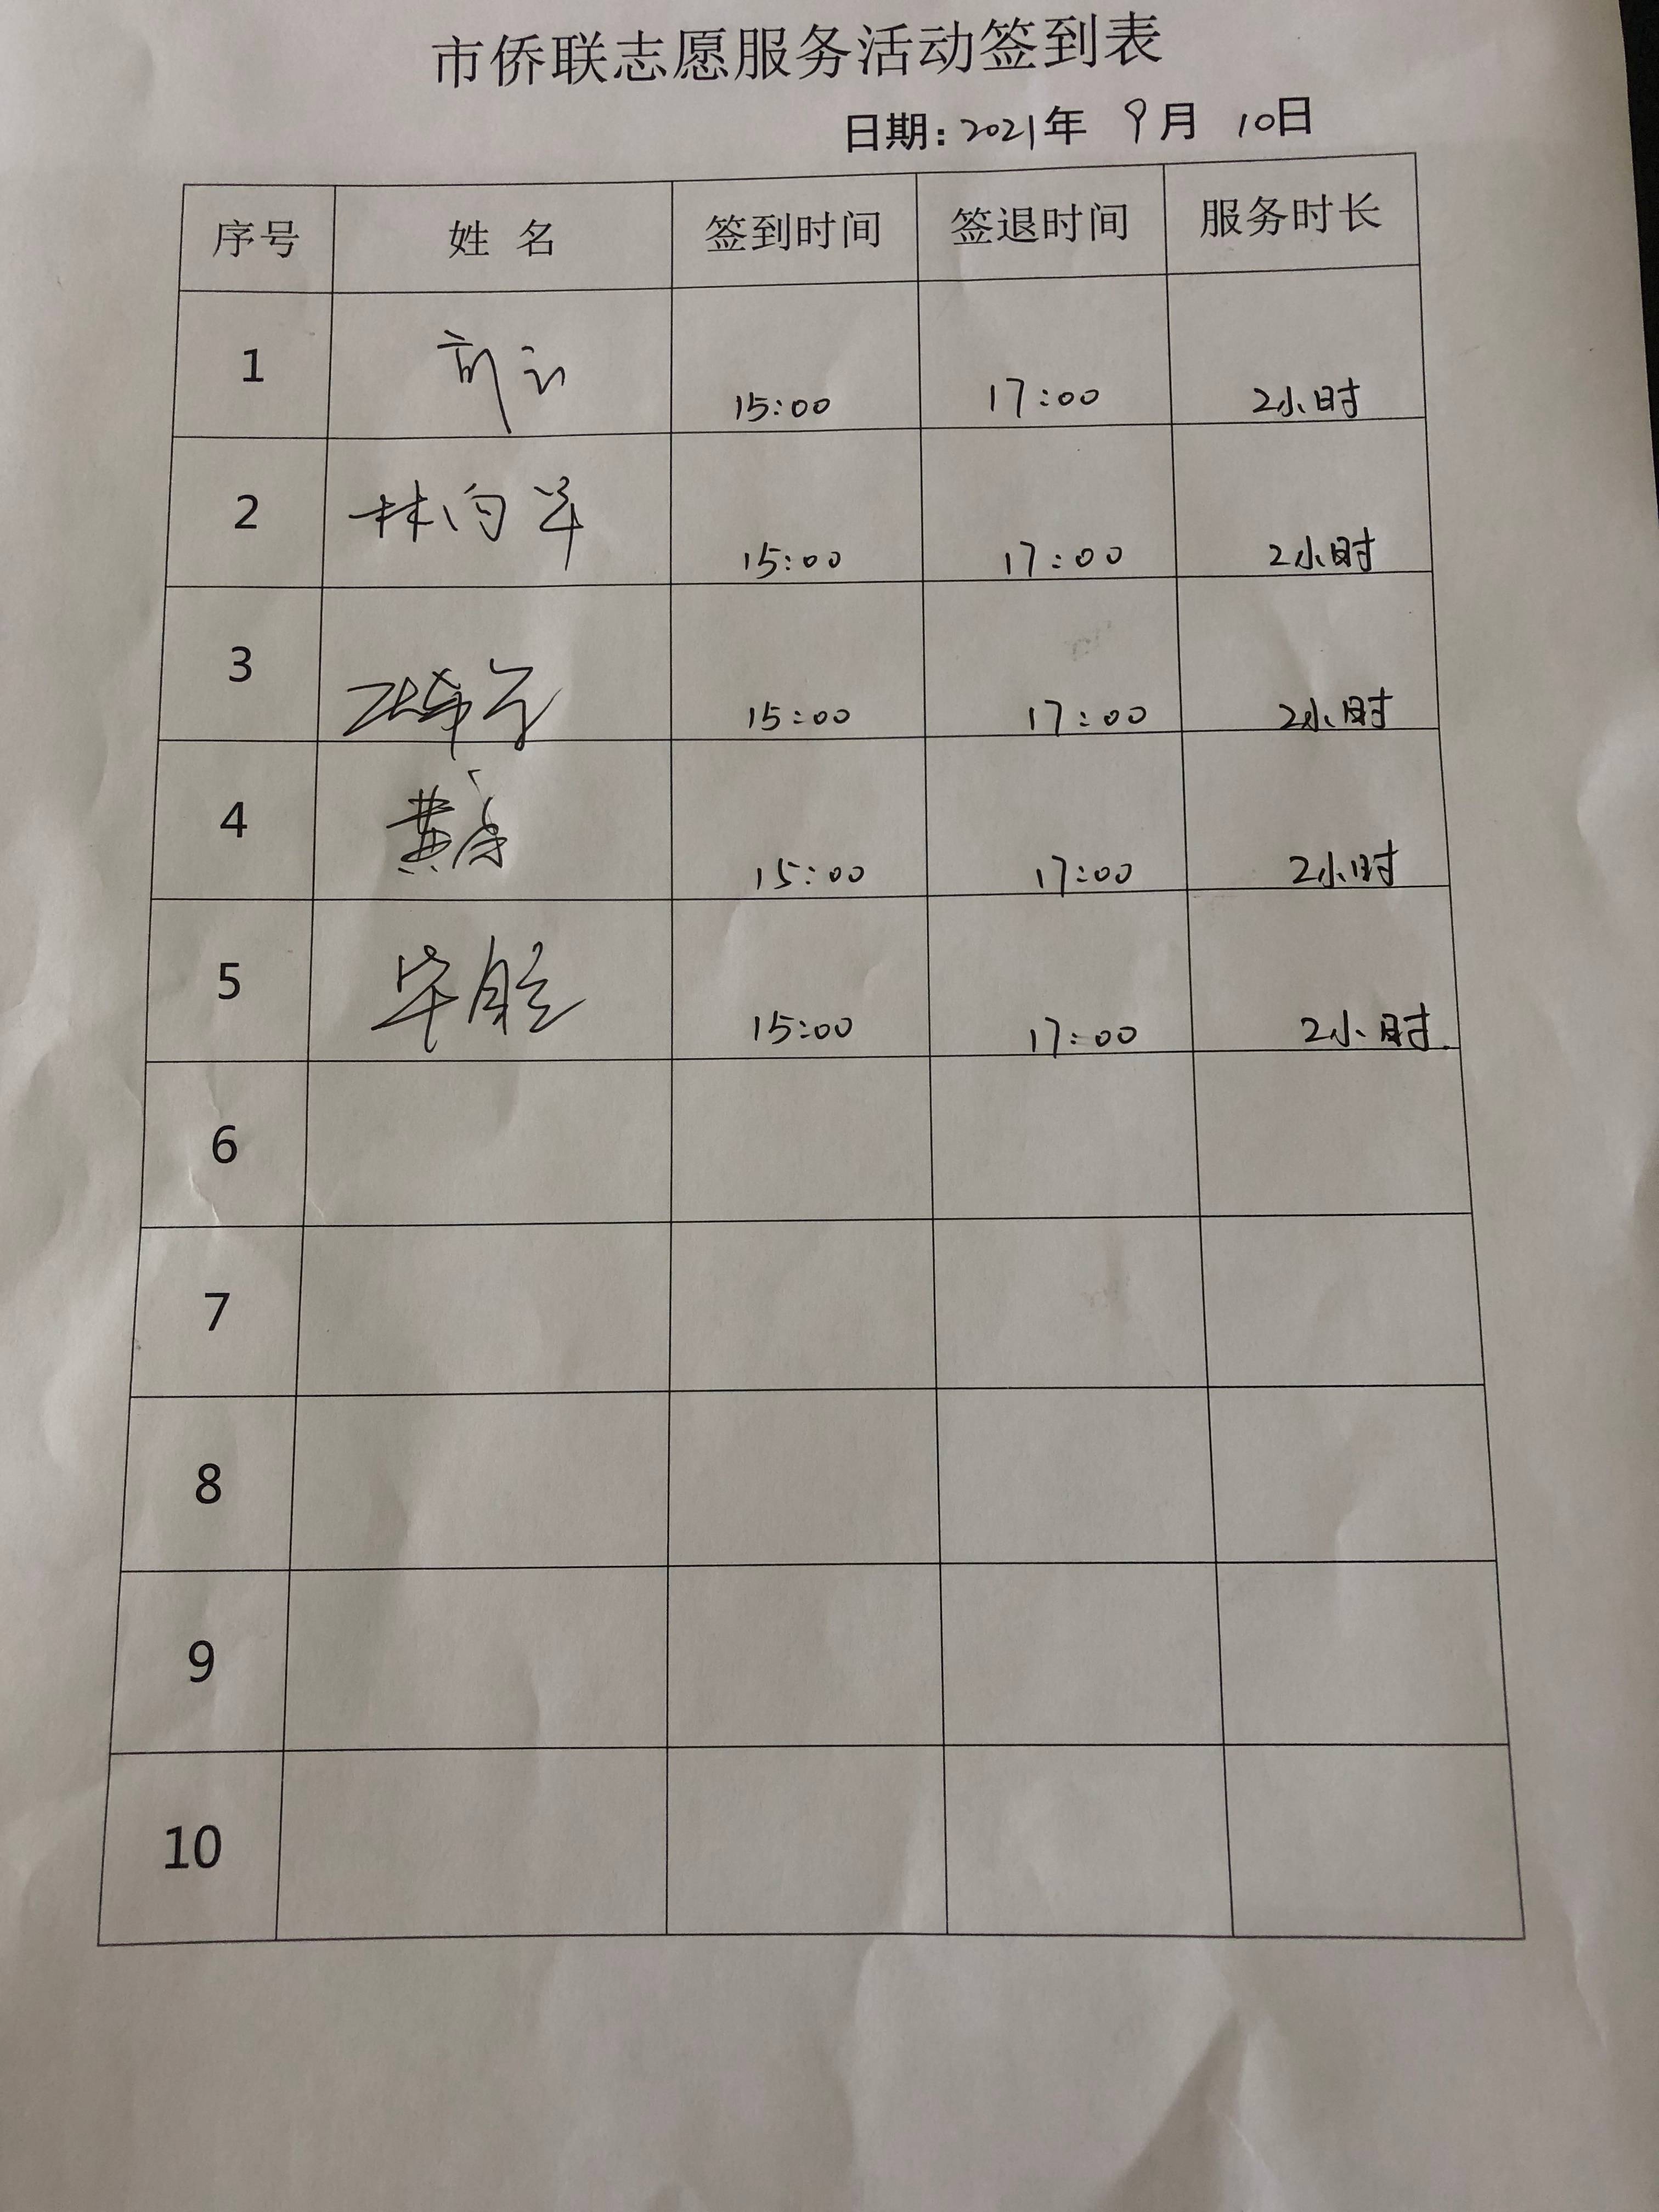 市侨联志愿服务活动签到表
日期：2021年 9月 10日
序号 姓 名 签到时间 签退时间 服务时长
1 15:00 17:00 2小时
2 林向羊 15:00 17:00 2小时
3 15:00 17:00 2小时
4 黄 15:00 17:00 2小时
5 15:00 17:00 2小时.
6
7
8
9
10